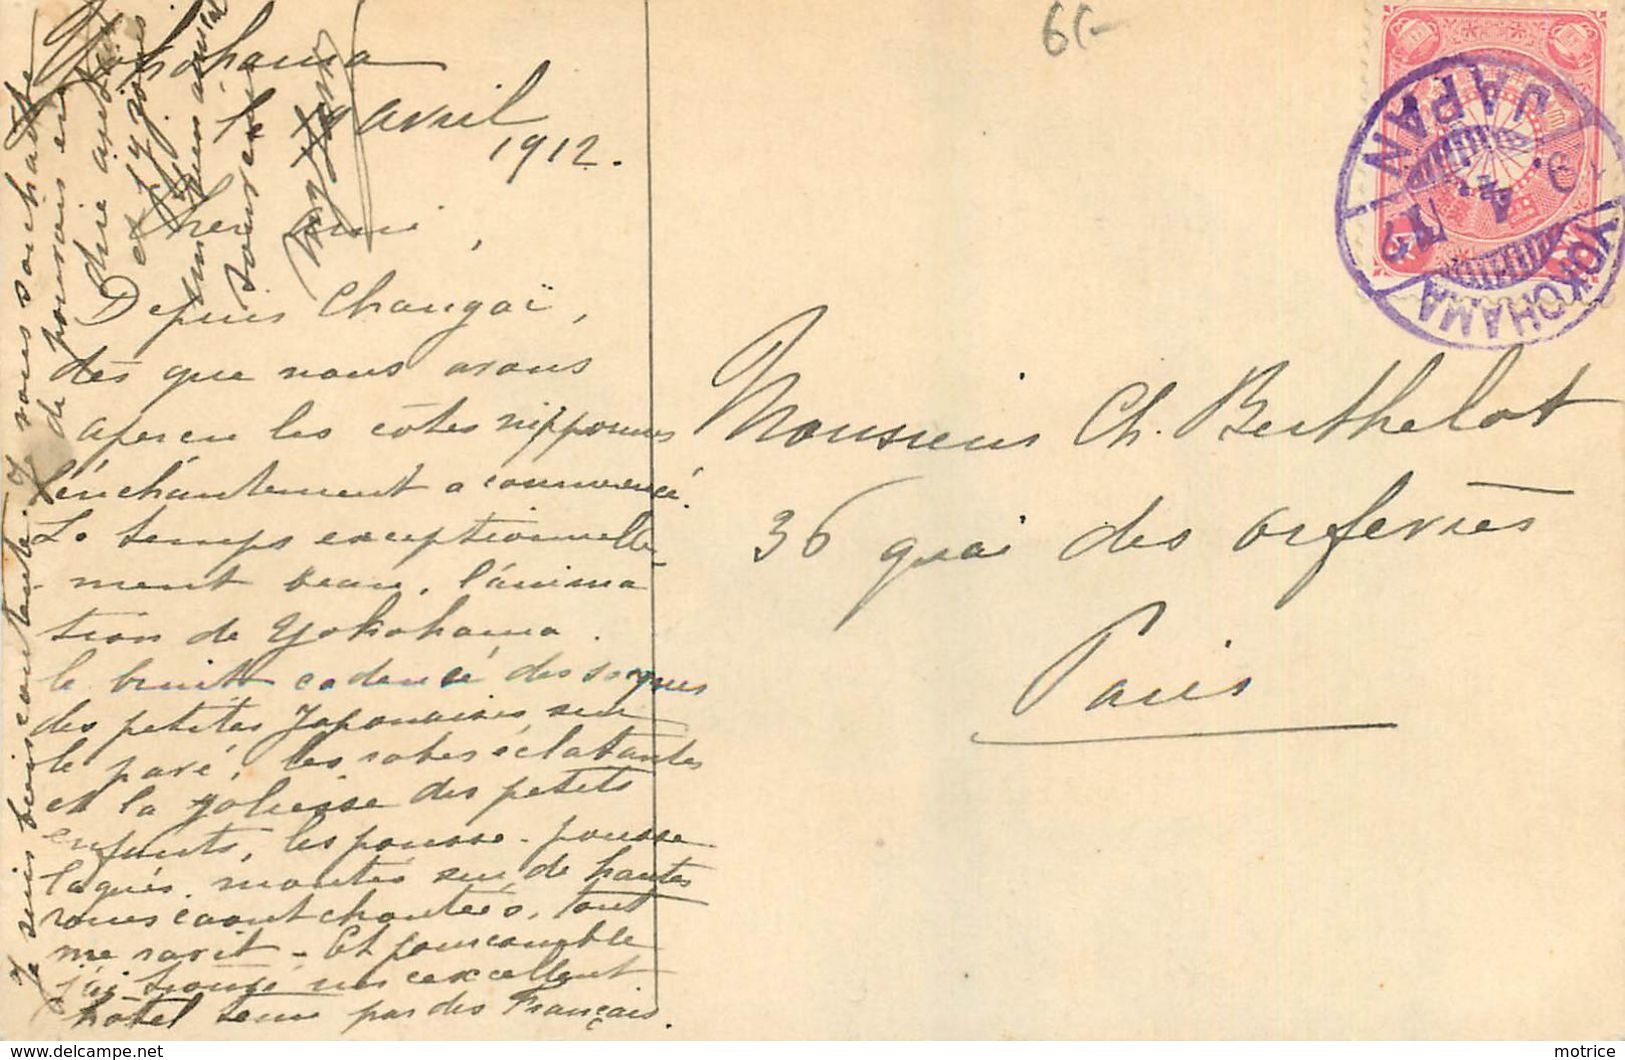 Yokohama
le avril
1912.
Cher ami,
Depuis Changaï,
dès que nous avons
aperçu les côtes nipponnes
l'enchantement a commencé.
Le temps exceptionnelle-
ment beau, l'anima-
tion de Yokohama.
le bruit cadencé des socques
des petites Japonaises sur
le pavé, les robes éclatantes
et la joliesse des petits
enfants, les pousse-pousse
laqués montés sur de hautes
roues caoutchoutées, tout
me ravit - Et pour comble
j'ai trouvé un excellent
hôtel tenu par des Français.
Je suis bien contente. Je vous souhaite
de pouvoir en
dire autant
et j'y joins
mon bien amical
souvenir
Monsieur Ch. Berthelot
36 quai des orfevres
Paris
6f-
YOKOHAMA
JAPAN
motrice
https://www.delcampe.net